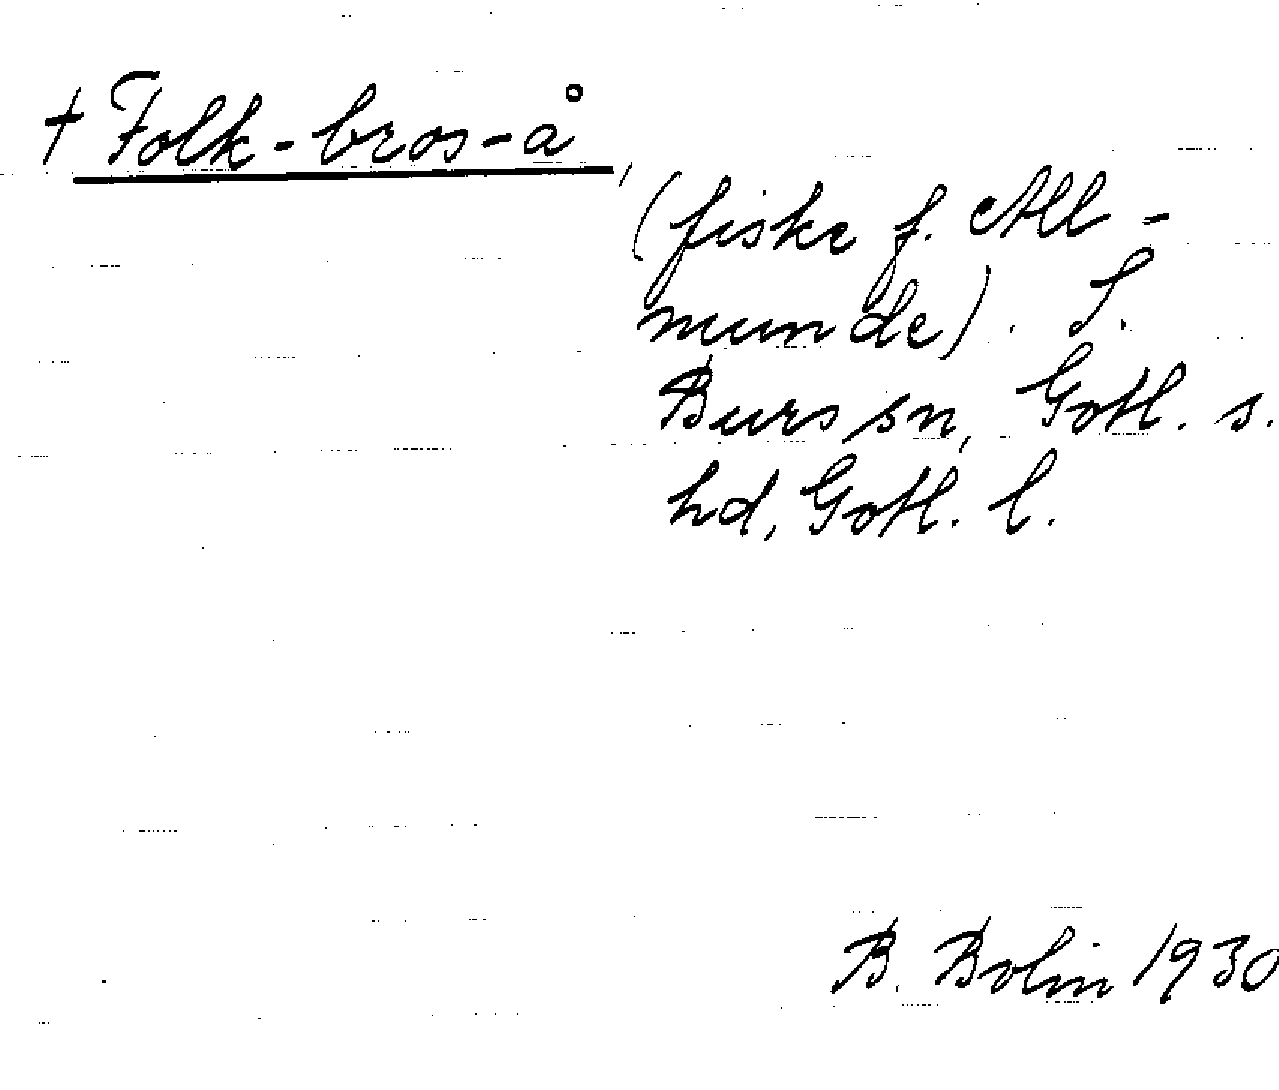 † Folk-bros-å,
(fiske f. All-
munde). S.
Burs sn, Gotl. s.
hd, Gotl. l.
B. Bolin 1930